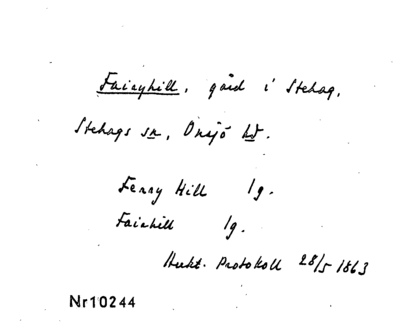 Faicyhill, gård i Stehag,
Stehags sn, Onsjö hd.
Ferry Hill 1g.
Fairhill 1g.
Aukt. Protokoll 28/5 1863
Nr10244